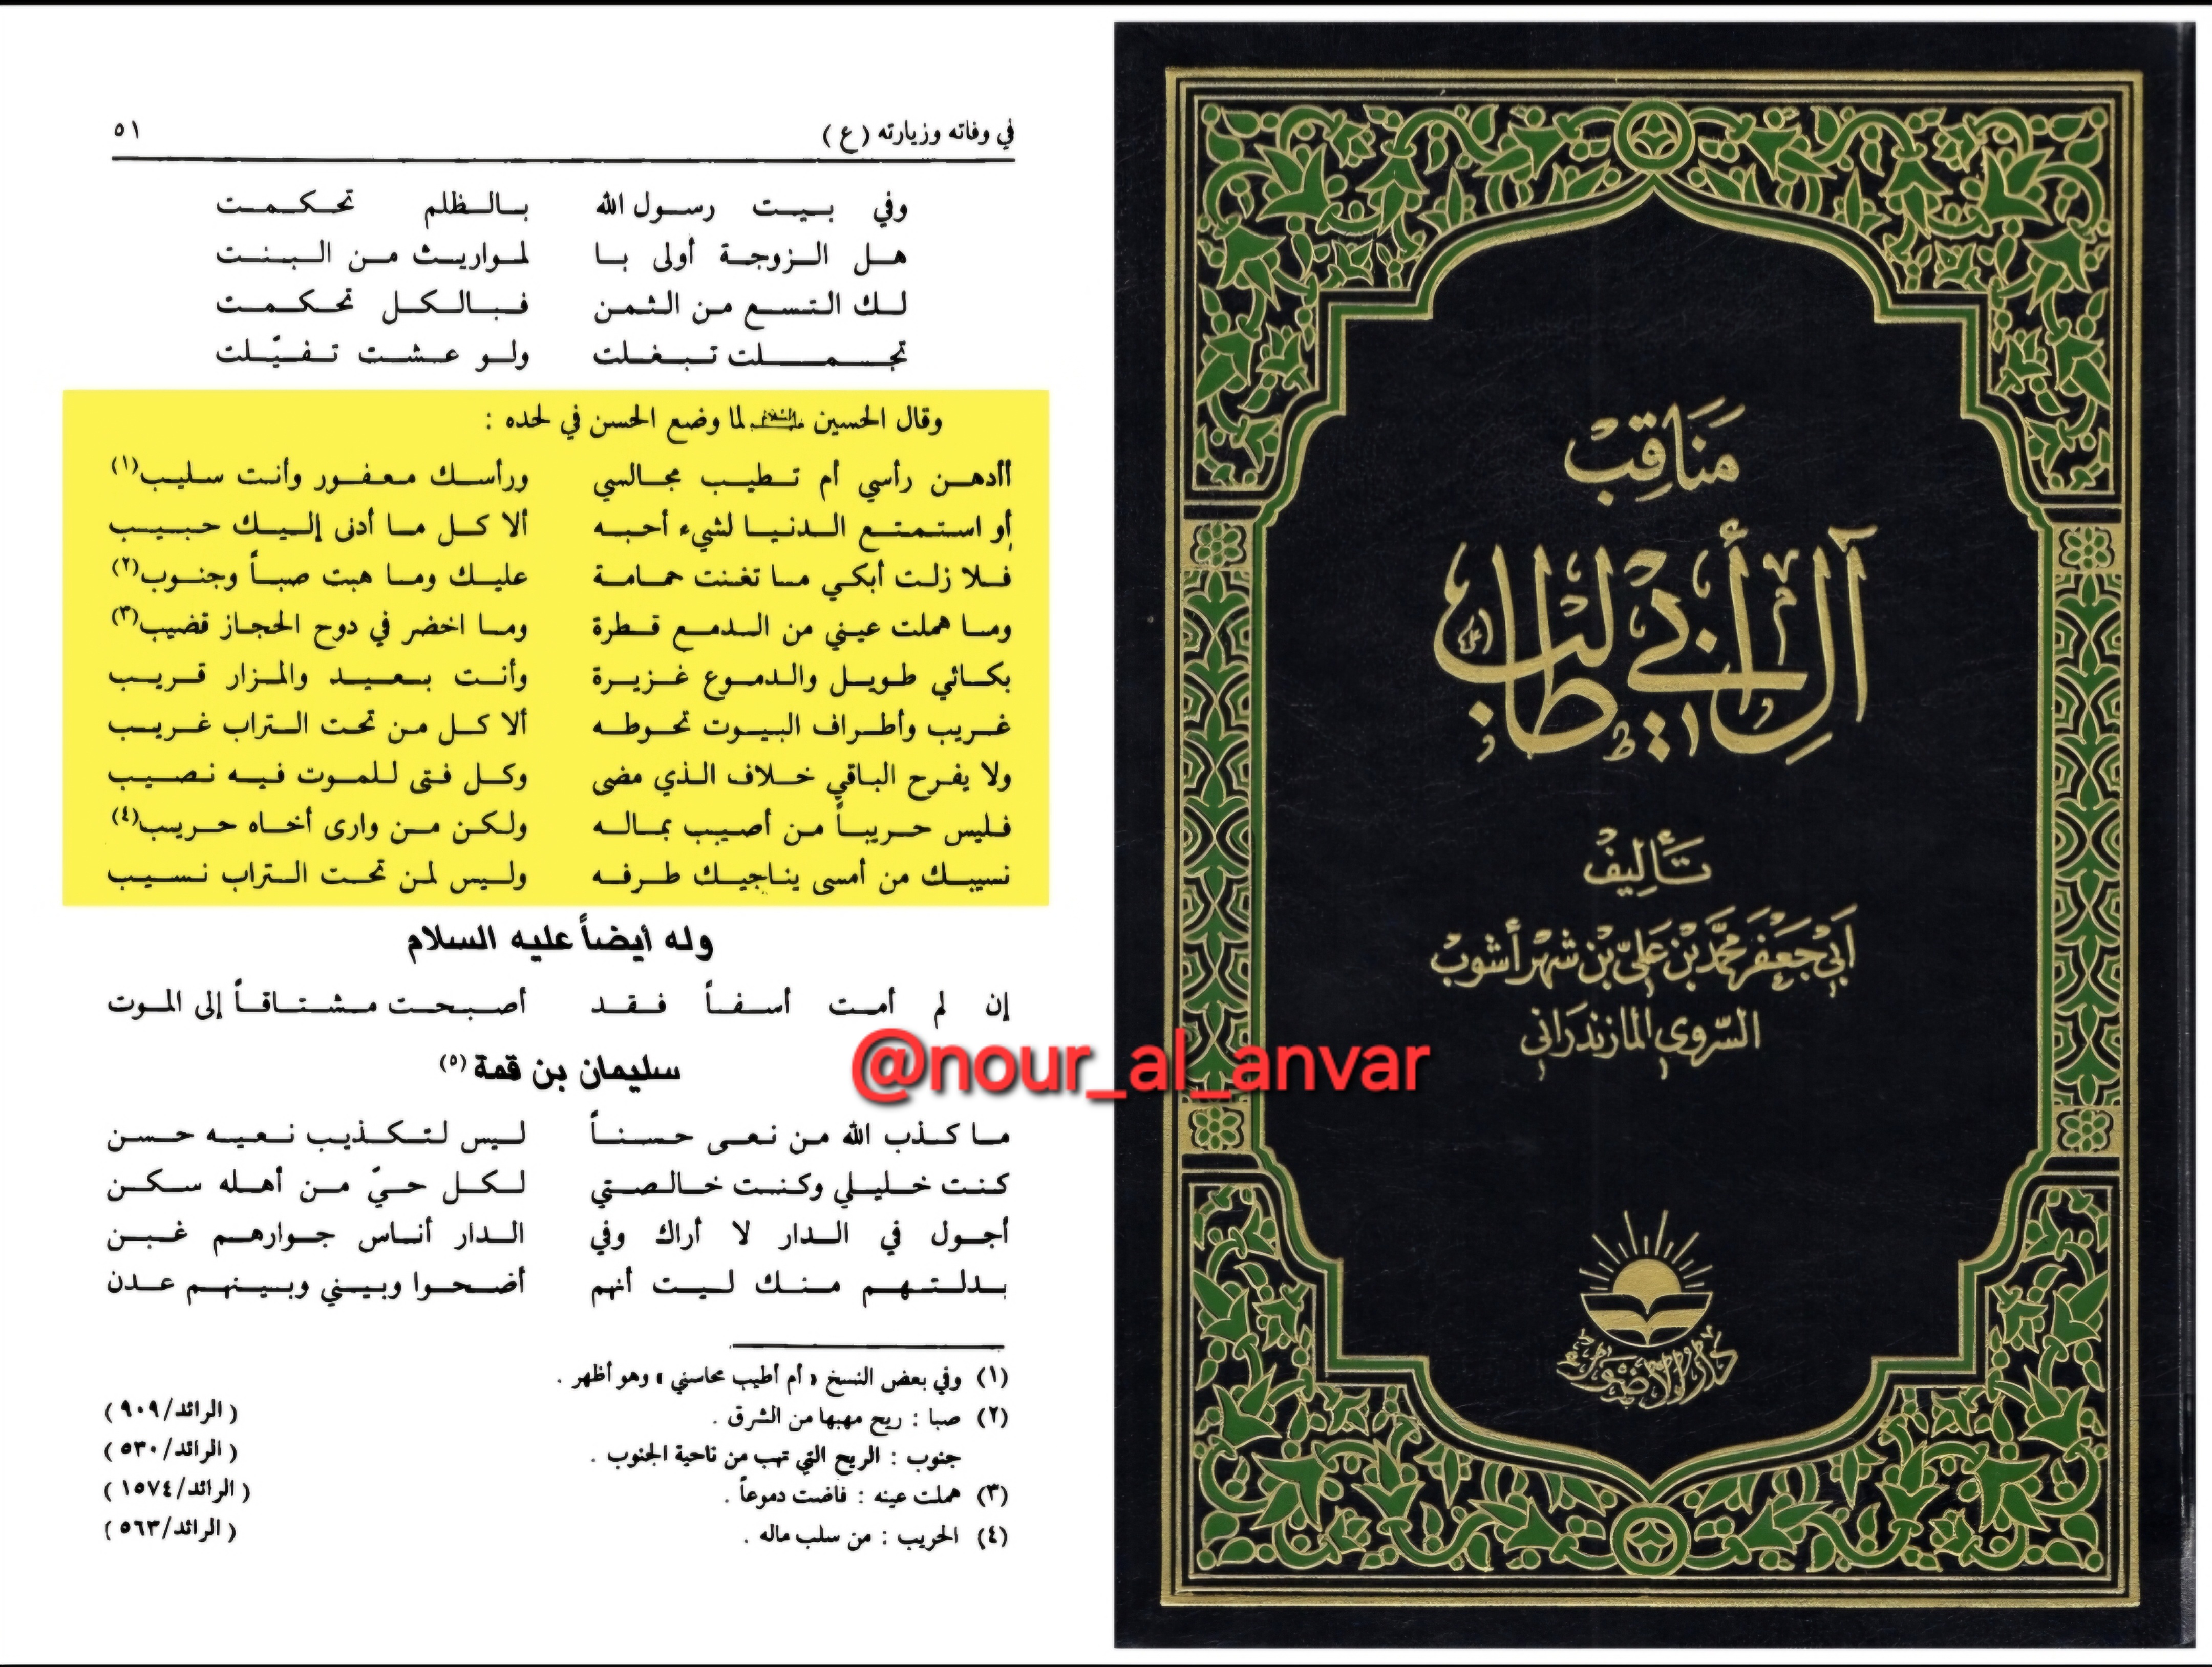 في وفاته وزيارته (ع) ٥١
وفي بيت رسول الله بالظلم تحكمت
هل الزوجة أولى با لمواريث من البنت
لك التسع من الثمن فبالكل تحكمت
تجملت تبغلت ولو عشت تفيّلت
وقال الحسين عليه السلام لما وضع الحسن في لحده :
أأدهن رأسي أم تطيب مجالسي ورأسك معفور وأنت سليب(١)
أو استمتع الدنيا لشيء أحبه ألا كل ما أدنى إليك حبيب
فلا زلت أبكي ما تغنت حمامة عليك وما هبت صباً وجنوب(٢)
وما هملت عيني من الدمع قطرة وما اخضر في دوح الحجاز قضيب(٣)
بكائي طويل والدموع غزيرة وأنت بعيد والمزار قريب
غريب وأطراف البيوت تحوطه ألا كل من تحت التراب غريب
ولا يفرح الباقي خلاف الذي مضى وكل فتى للموت فيه نصيب
فليس حريباً من أصيب بماله ولكن من وارى أخاه حريب(٤)
نسيبك من أمسى يناجيك طرفه وليس لمن تحت التراب نسيب
وله أيضاً عليه السلام
إن لم أمت أسفاً فقد أصبحت مشتاقاً إلى الموت
سليمان بن قمة (٥)
ما كذب الله من نعى حسناً ليس لتكذيب نعيه حسن
كنت خليلي وكنت خالصتي لكل حيّ من أهله سكن
أجول في الدار لا أراك وفي الدار أناس جوارهم غبن
بدلتهم منك ليت أنهم أضحوا وبيني وبينهم عدن
(١) وفي بعض النسخ « أم أطيب محاسني » وهو أظهر .
(٢) صبا : ريح مهبها من الشرق . ( الرائد/٩٠٩ )
جنوب : الريح التي تهب من ناحية الجنوب . ( الرائد/٥٣٠ )
(٣) هملت عينه : فاضت دموعاً . ( الرائد/١٥٧٤ )
(٤) الحريب : من سلب ماله . ( الرائد/٥٦٣ )
مَنَاقِبْ
آلِ أَبِي طَالِب
تَأْلِيفْ
أَبِي جَعْفَر مُحَمَّد بْن عَلِيّ بْن شَهْر أَشُوبْ
السَّرَوِي المازَنْدَرَاني
دار الأضواء
@nour_al_anvar